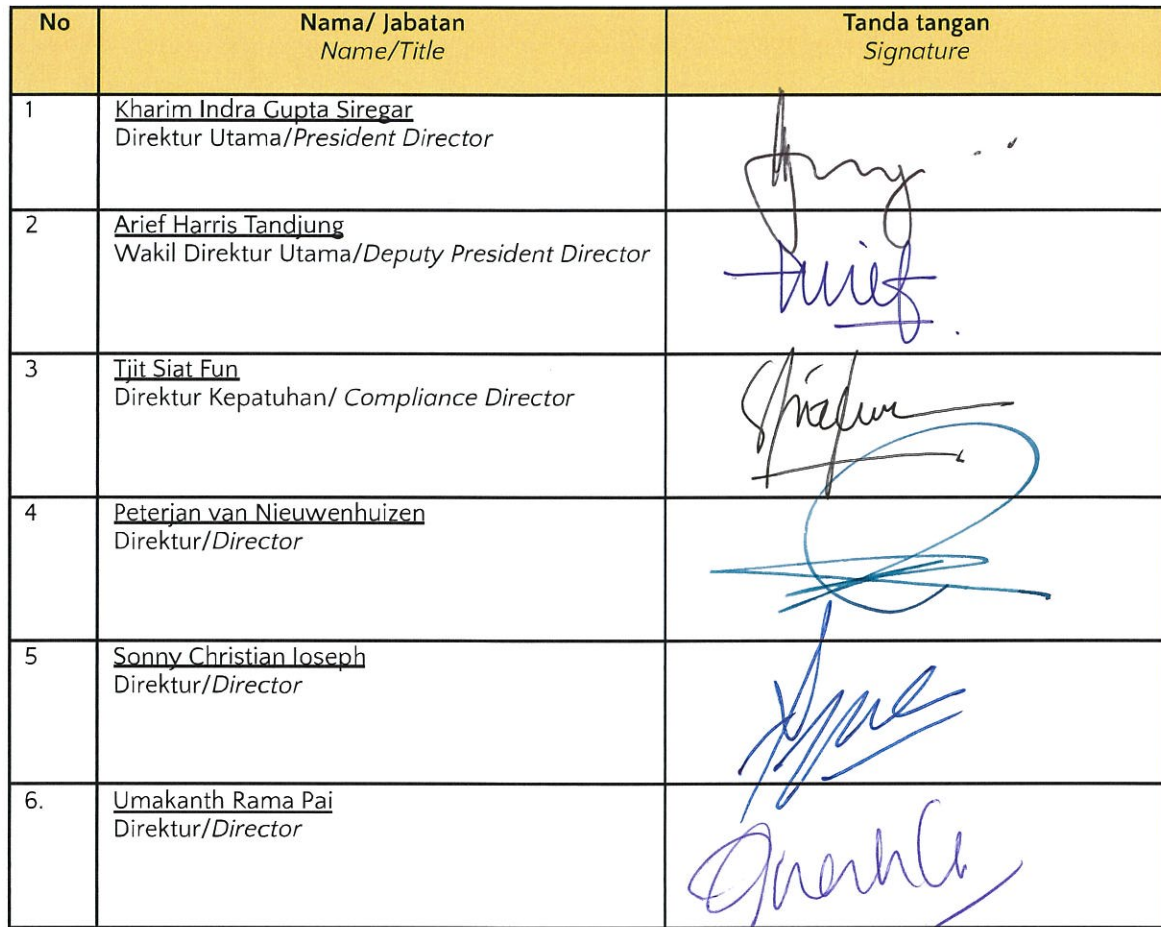 No Nama/ Jabatan Tanda tangan
Name/Title Signature
1 Kharim Indra Gupta Siregar
Direktur Utama/President Director
2 Arief Harris Tandjung
Wakil Direktur Utama/Deputy President Director
3 Tjit Siat Fun
Direktur Kepatuhan/ Compliance Director
4 Peterjan van Nieuwenhuizen
Direktur/Director
5 Sonny Christian Joseph
Direktur/Director
6. Umakanth Rama Pai
Direktur/Director